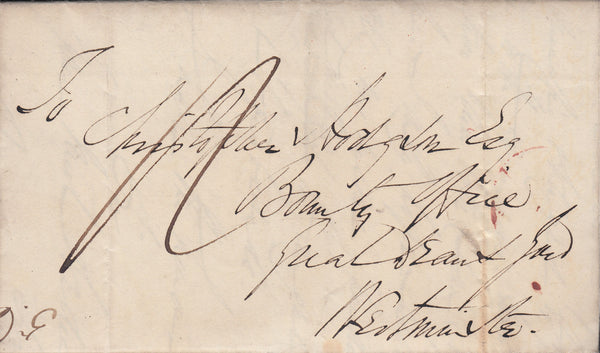 To
Christopher Hodgson Esq
Bounty Office
Great Deans Yard
Westminster.